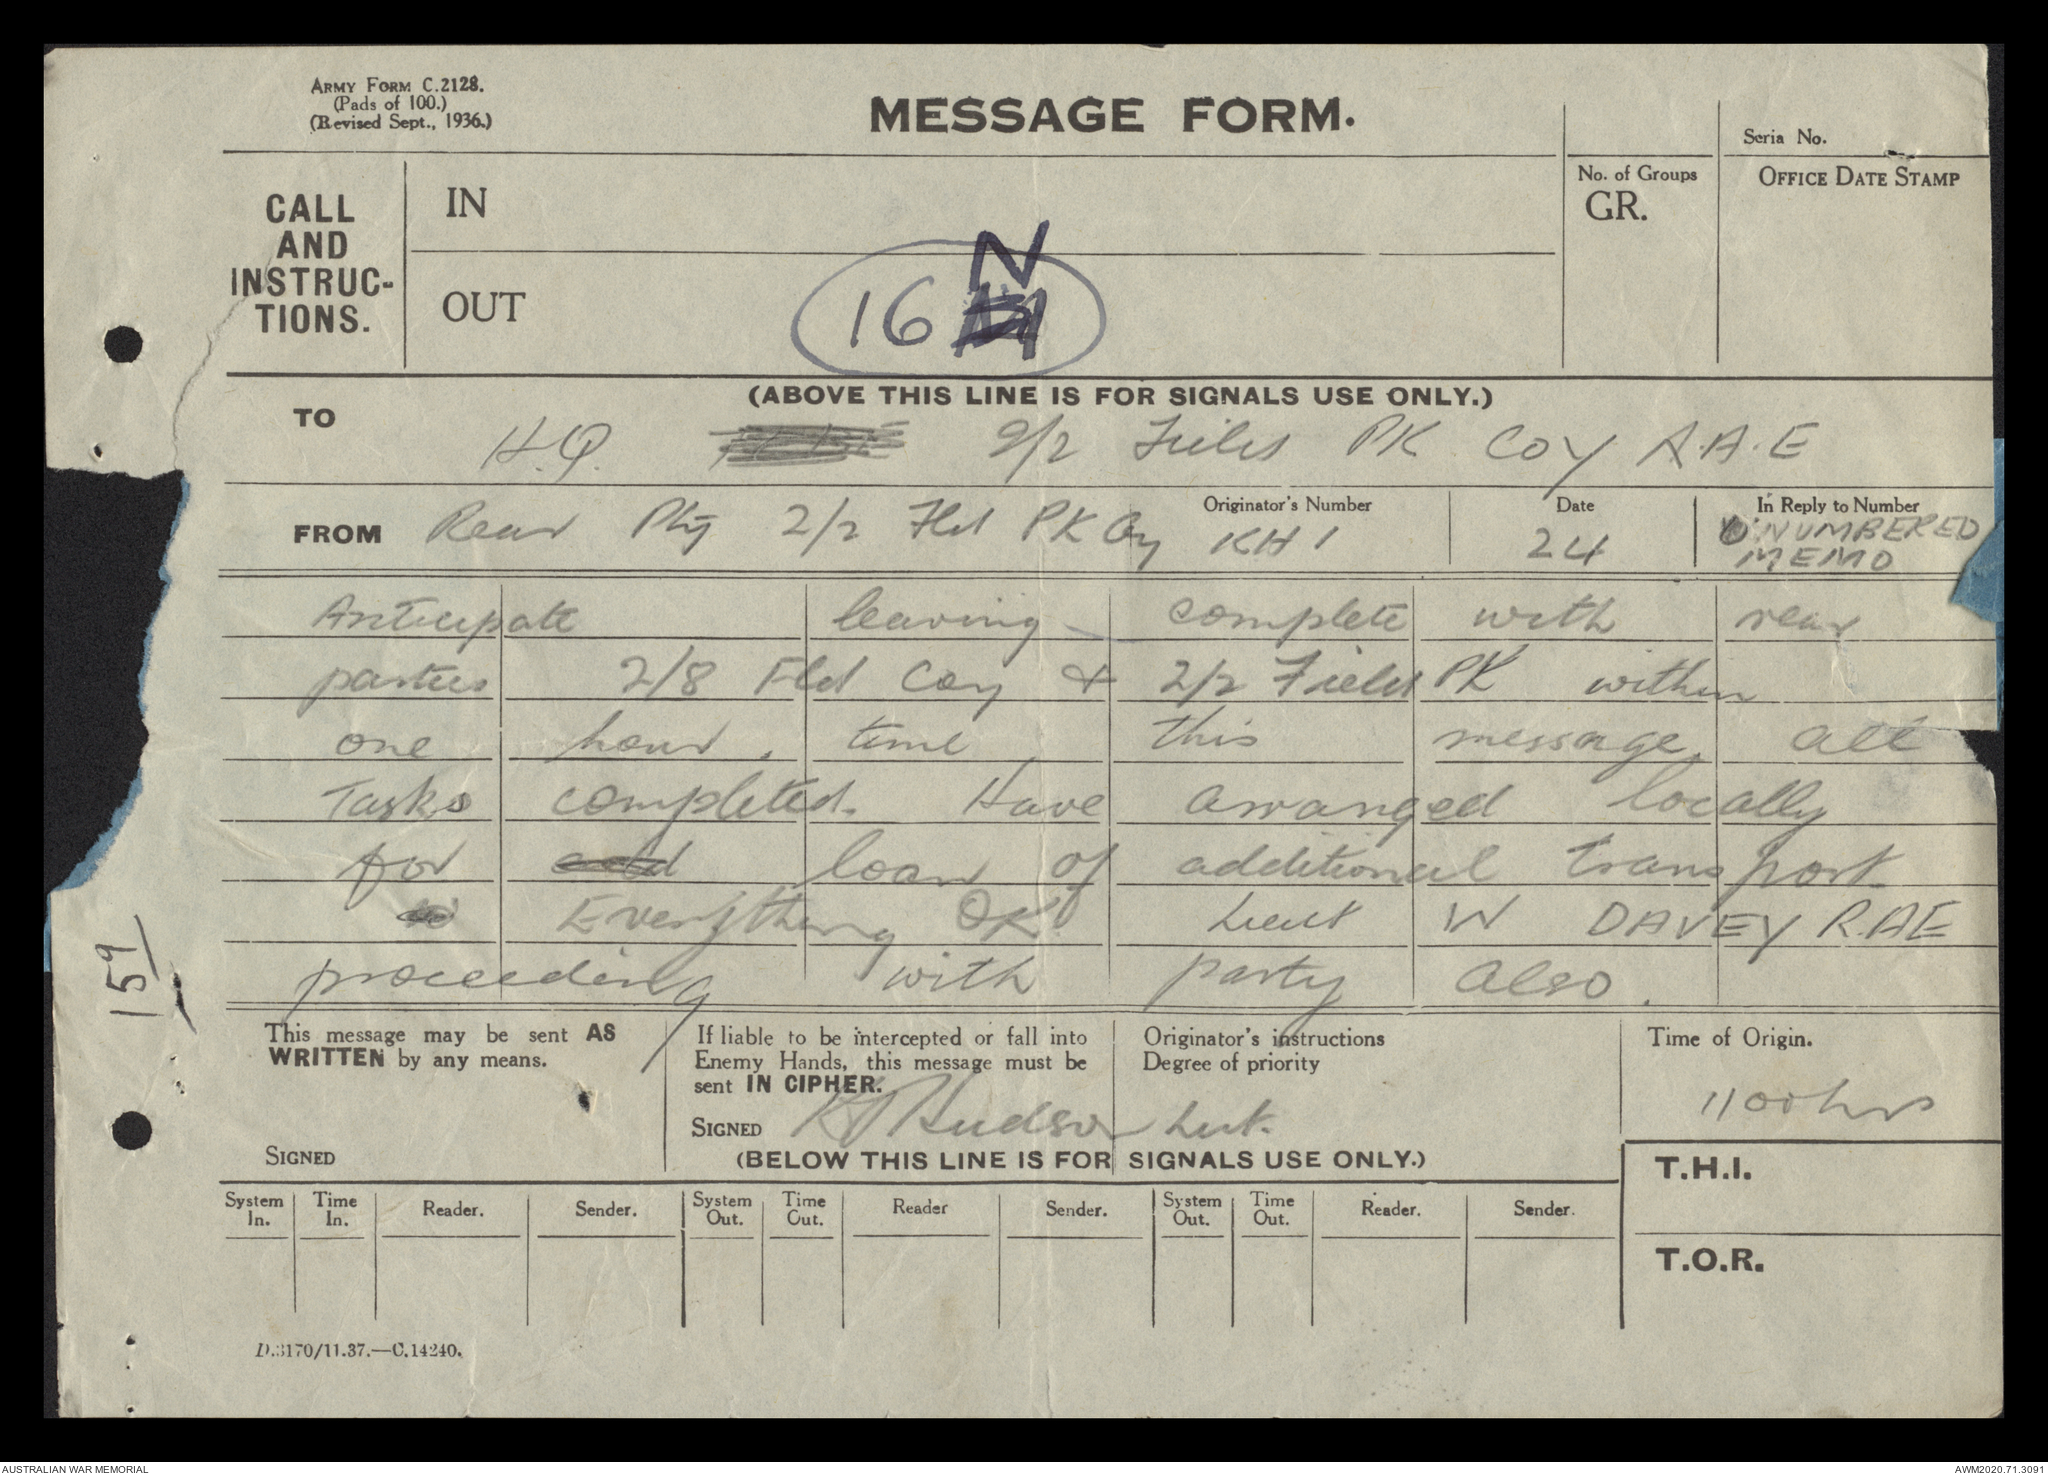 ARMY FORM C.2128.
(Pads of 100.)
(Revised Sept., 1936.)
MESSAGE FORM.
Seria No.
CALL
AND
INSTRUC-
TIONS.
IN
OUT
No. of Groups
GR.
OFFICE DATE STAMP
16 N
(ABOVE THIS LINE IS FOR SIGNALS USE ONLY.)
TO H.Q. 2/2 Field PK COY R.A.E
FROM Rear Pty 2/2 Fld PK Coy
Originator's Number
KH 1
Date
24
In Reply to Number
UNNUMBERED
MEMO
Anticipate leaving complete with rear
parties 2/8 Fld Coy & 2/2 Field PK within
one hour. time this message. all
Tasks completed. Have arranged locally
for loan of additional transport
Everything OK. Lieut W DAVEY R.A.E
proceeding with party also.
159
This message may be sent AS
WRITTEN by any means.
SIGNED
If liable to be intercepted or fall into
Enemy Hands, this message must be
sent IN CIPHER.
SIGNED Hudson Lieut.
Originator's instructions
Degree of priority
Time of Origin.
1100 hrs
(BELOW THIS LINE IS FOR SIGNALS USE ONLY.)
T.H.I.
T.O.R.
System In. Time In. Reader. Sender. System Out. Time Out. Reader Sender. System Out. Time Out. Reader. Sender.
D.3170/11.37.—C.14240.
AUSTRALIAN WAR MEMORIAL
AWM2020.71.3091